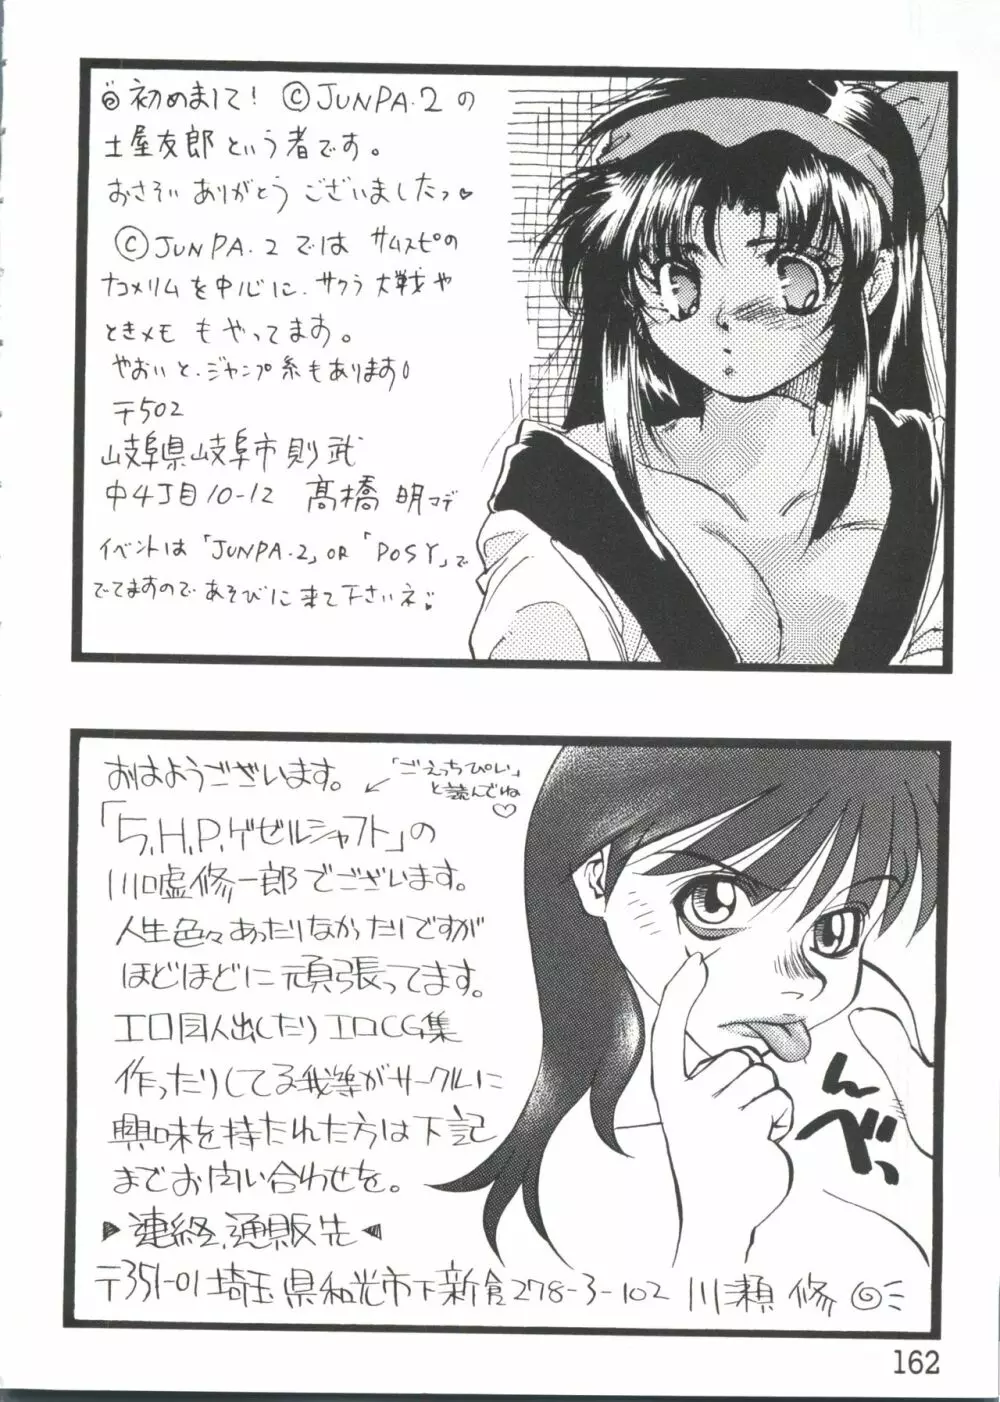 初めまして! ©JUNPA.2の
土屋友郎という者です。
おさそい ありがとう ございましたっ♡
©JUNPA.2では サムスピの
ナコ×リムを中心に、サクラ大戦や
ときメモ もやってます。
やおいと、ジャンプ系もあります!
〒502
岐阜県岐阜市則武
中4丁目10-12 髙橋 明マデ
イベントは「JUNPA.2」OR「POSY」で
でてますので あそびに 来て下さいネ
おはようございます。
「ごえっちぴい」
と読んでね♡
「5.H.P.ゲゼルシャフト」の
川口虚修一郎でございます。
人生色々あったりなかったりですが
ほどほどに頑張ってます。
エロ同人出したりエロCG集
作ったりしてる我等がサークルに
興味を持たれた方は下記
までお問い合わせを。
▶連絡、通販先◀
〒351-01埼玉県和光市下新倉278-3-102 川瀬 修
んべっ
162